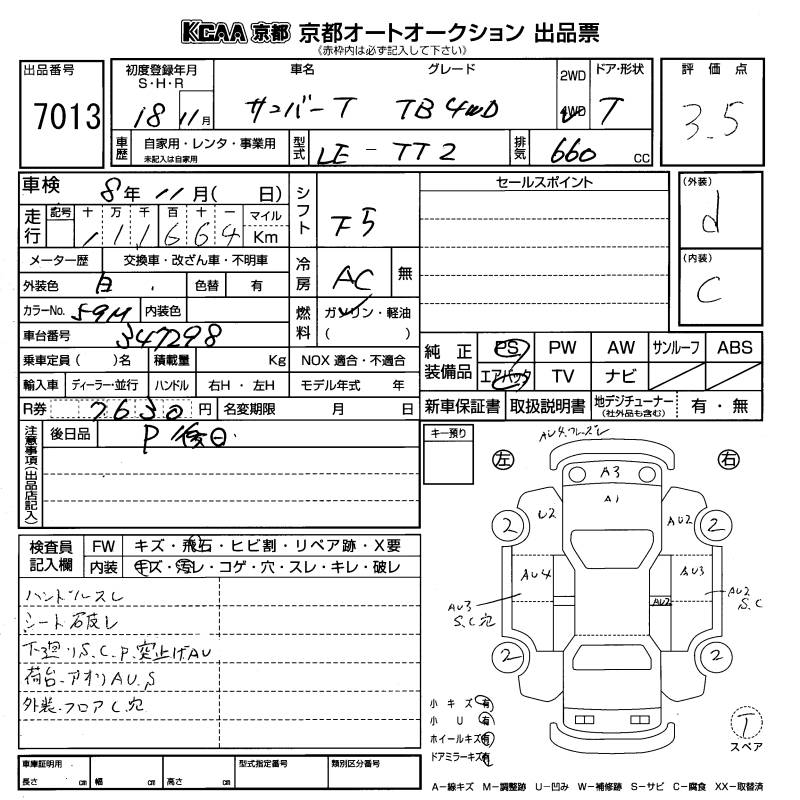 KCAA 京都 京都オートオークション 出品票
(赤枠内は必ず記入して下さい)
出品番号 7013
初度登録年月 S・H・R 18 11月
車名 グレード サンバーT TB 4WD
2WD 4WD
ドア・形状 T
評価点 3.5
車歴 自家用・レンタ・事業用 未記入は自家用
型式 LE-TT2
排気 660 CC
車検 8年 11月( 日)
シフト F5
セールスポイント
(外装) d
(内装) C
走行 記号 十 万 千 百 十 一 マイル Km
111664
メーター歴 交換車・改ざん車・不明車
冷房 AC 無
外装色 白 色替 有
カラーNo. 59M 内装色
燃料 ガソリン・軽油 ( )
車台番号 347298
乗車定員 ( )名 積載量 Kg NOX 適合・不適合
輸入車 ディーラー・並行 ハンドル 右H・左H モデル年式 年
R券 7630円 名変期限 月 日
純正装備品 PS PW AW サンルーフ ABS
エアバッグ TV ナビ
新車保証書 取扱説明書 地デジチューナー (社外品も含む) 有・無
注意事項(出品店記入)
後日品 P 後日
キー預り
左 右
AU4.
A3
A1
U2 AU2
2 2
AU4 AU3
AU3 S.C穴
AU2
AU2 S.C
2 2
検査員記入欄 FW キズ・飛石・ヒビ割・リペア跡・X要
内装 キズ・汚レ・コゲ・穴・スレ・キレ・破レ
ハンドルスレ
シート 皮レ
下廻リS.C.P.突上げAU
荷台.アオリAU.S
外装.フロアC穴
小キズ 有
小U 有
ホイールキズ 有
ドアミラーキズ 有
T スペア
車庫証明用 長さ cm 幅 cm 高さ cm 型式指定番号 類別区分番号
A-線キズ M-調整跡 U-凹み W-補修跡 S-サビ C-腐食 XX-取替済